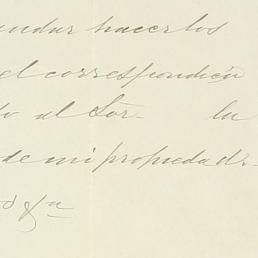 hacer los
el correspondien
al Sor. lu
de mi propiedad